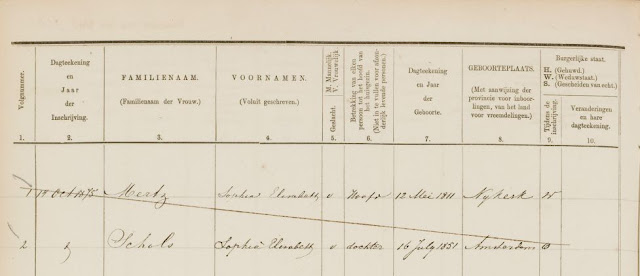 Volgnummer.
Dagteekening
en
Jaar
der
Inschrijving.
FAMILIENAAM.
(Familienaam der Vrouw.)
VOORNAMEN.
(Voluit geschreven.)
Geslacht. M. Mannelijk
V. Vrouwelijk
Betrekking van elken
persoon tot het hoofd van
het huisgezin.
(Niet in te vullen voor afzon-
derlijk levende personen.)
Dagteekening
en Jaar
der
Geboorte.
GEBOORTEPLAATS.
(Met aanwijzing der
provincie voor inboor-
lingen, van het land
voor vreemdelingen.)
Burgerlijke staat.
H. (Gehuwd.)
W. (Weduwstaat.)
S. (Gescheiden van echt.)
Tijdens de
inschrijving.
Veranderingen
en hare
dagteekening.
1. 2. 3. 4. 5. 6. 7. 8. 9. 10.
1 Oct 1875 Mertz Sophia Elisabeth v Hoofd 12 Mei 1811 Nykerk W
2 Schols Sophia Elisabeth v dochter 16 July 1851 Amsterdam